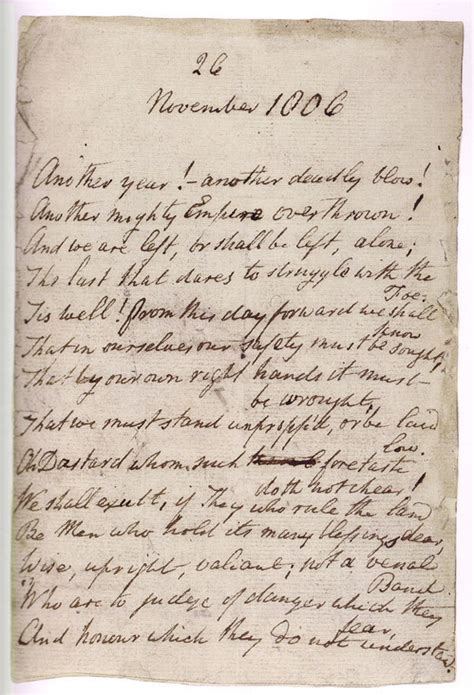 26
November 1806
Another year! – another deadly blow!
Another mighty Empire overthrown!
And we are left, or shall be left, alone;
The last that dares to struggle with the
Foe.
Tis well! from this day forward we shall
know
That in ourselves our safety must be sought,
That by our own right hands it must
be wrought,
That we must stand unpropp'd, or be laid
low.
Oh Dastard whom such foretaste
doth not chear!
We shall exult, if They who rule the land
Be Men who hold its many blessings dear,
Wise, upright, valiant; not a venal
Band,
Who are to judge of danger which they
fear,
And honour which they do not understand.